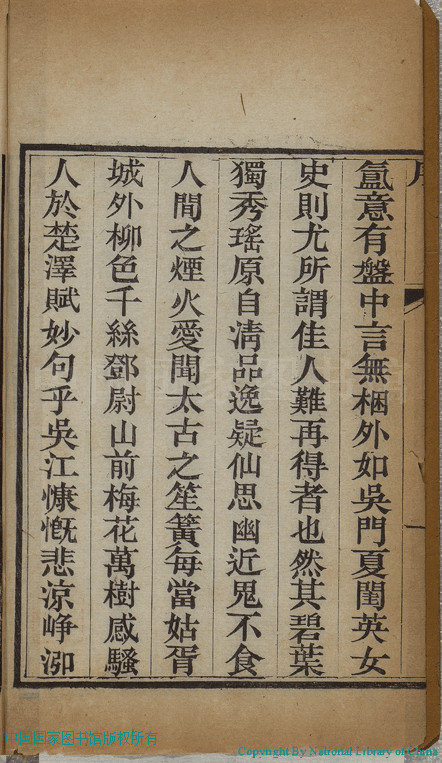 氳意有盤中言無梱外如吳門夏閨英女
史則尤所謂佳人難再得者也然其碧葉
獨秀瑤原自凊品逸疑仙思幽近鬼不食
人間之煙火愛聞太古之笙簧每當姑胥
城外柳色千絲鄧尉山前梅花萬樹感騷
人於楚澤賦妙句乎吳江慷慨悲涼崢泖
中国国家图书馆版权所有
Copyright By National Library of China